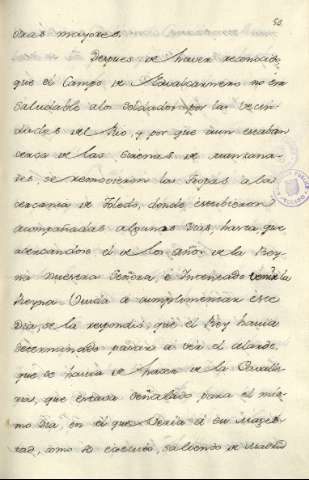 50
dras mayores.
Despues de haver reconocido
que el Campo de Navalcarnero no era
saludable a los soldados por las vecin
dades del Rio, y por que aun estaban
cerca de las de manzana-
res, se removieron las tropas a la
cercania de Toledo, donde estubieron
acompañadas algunos dias, hasta que
acercandose el de los años de la Rey-
na nuestra Señora, è Intentado venir la
Reyna Viuda a cumplimentar este
Dia, se la respondiò, que el Rey havia
determinado pasar a ver el alarde
que se havia de hacer de la Cavalle-
ria, que estava señalado para el mis-
mo dia, en el que seria a su Mages-
tad, como lo executò, saliendo de Madrid